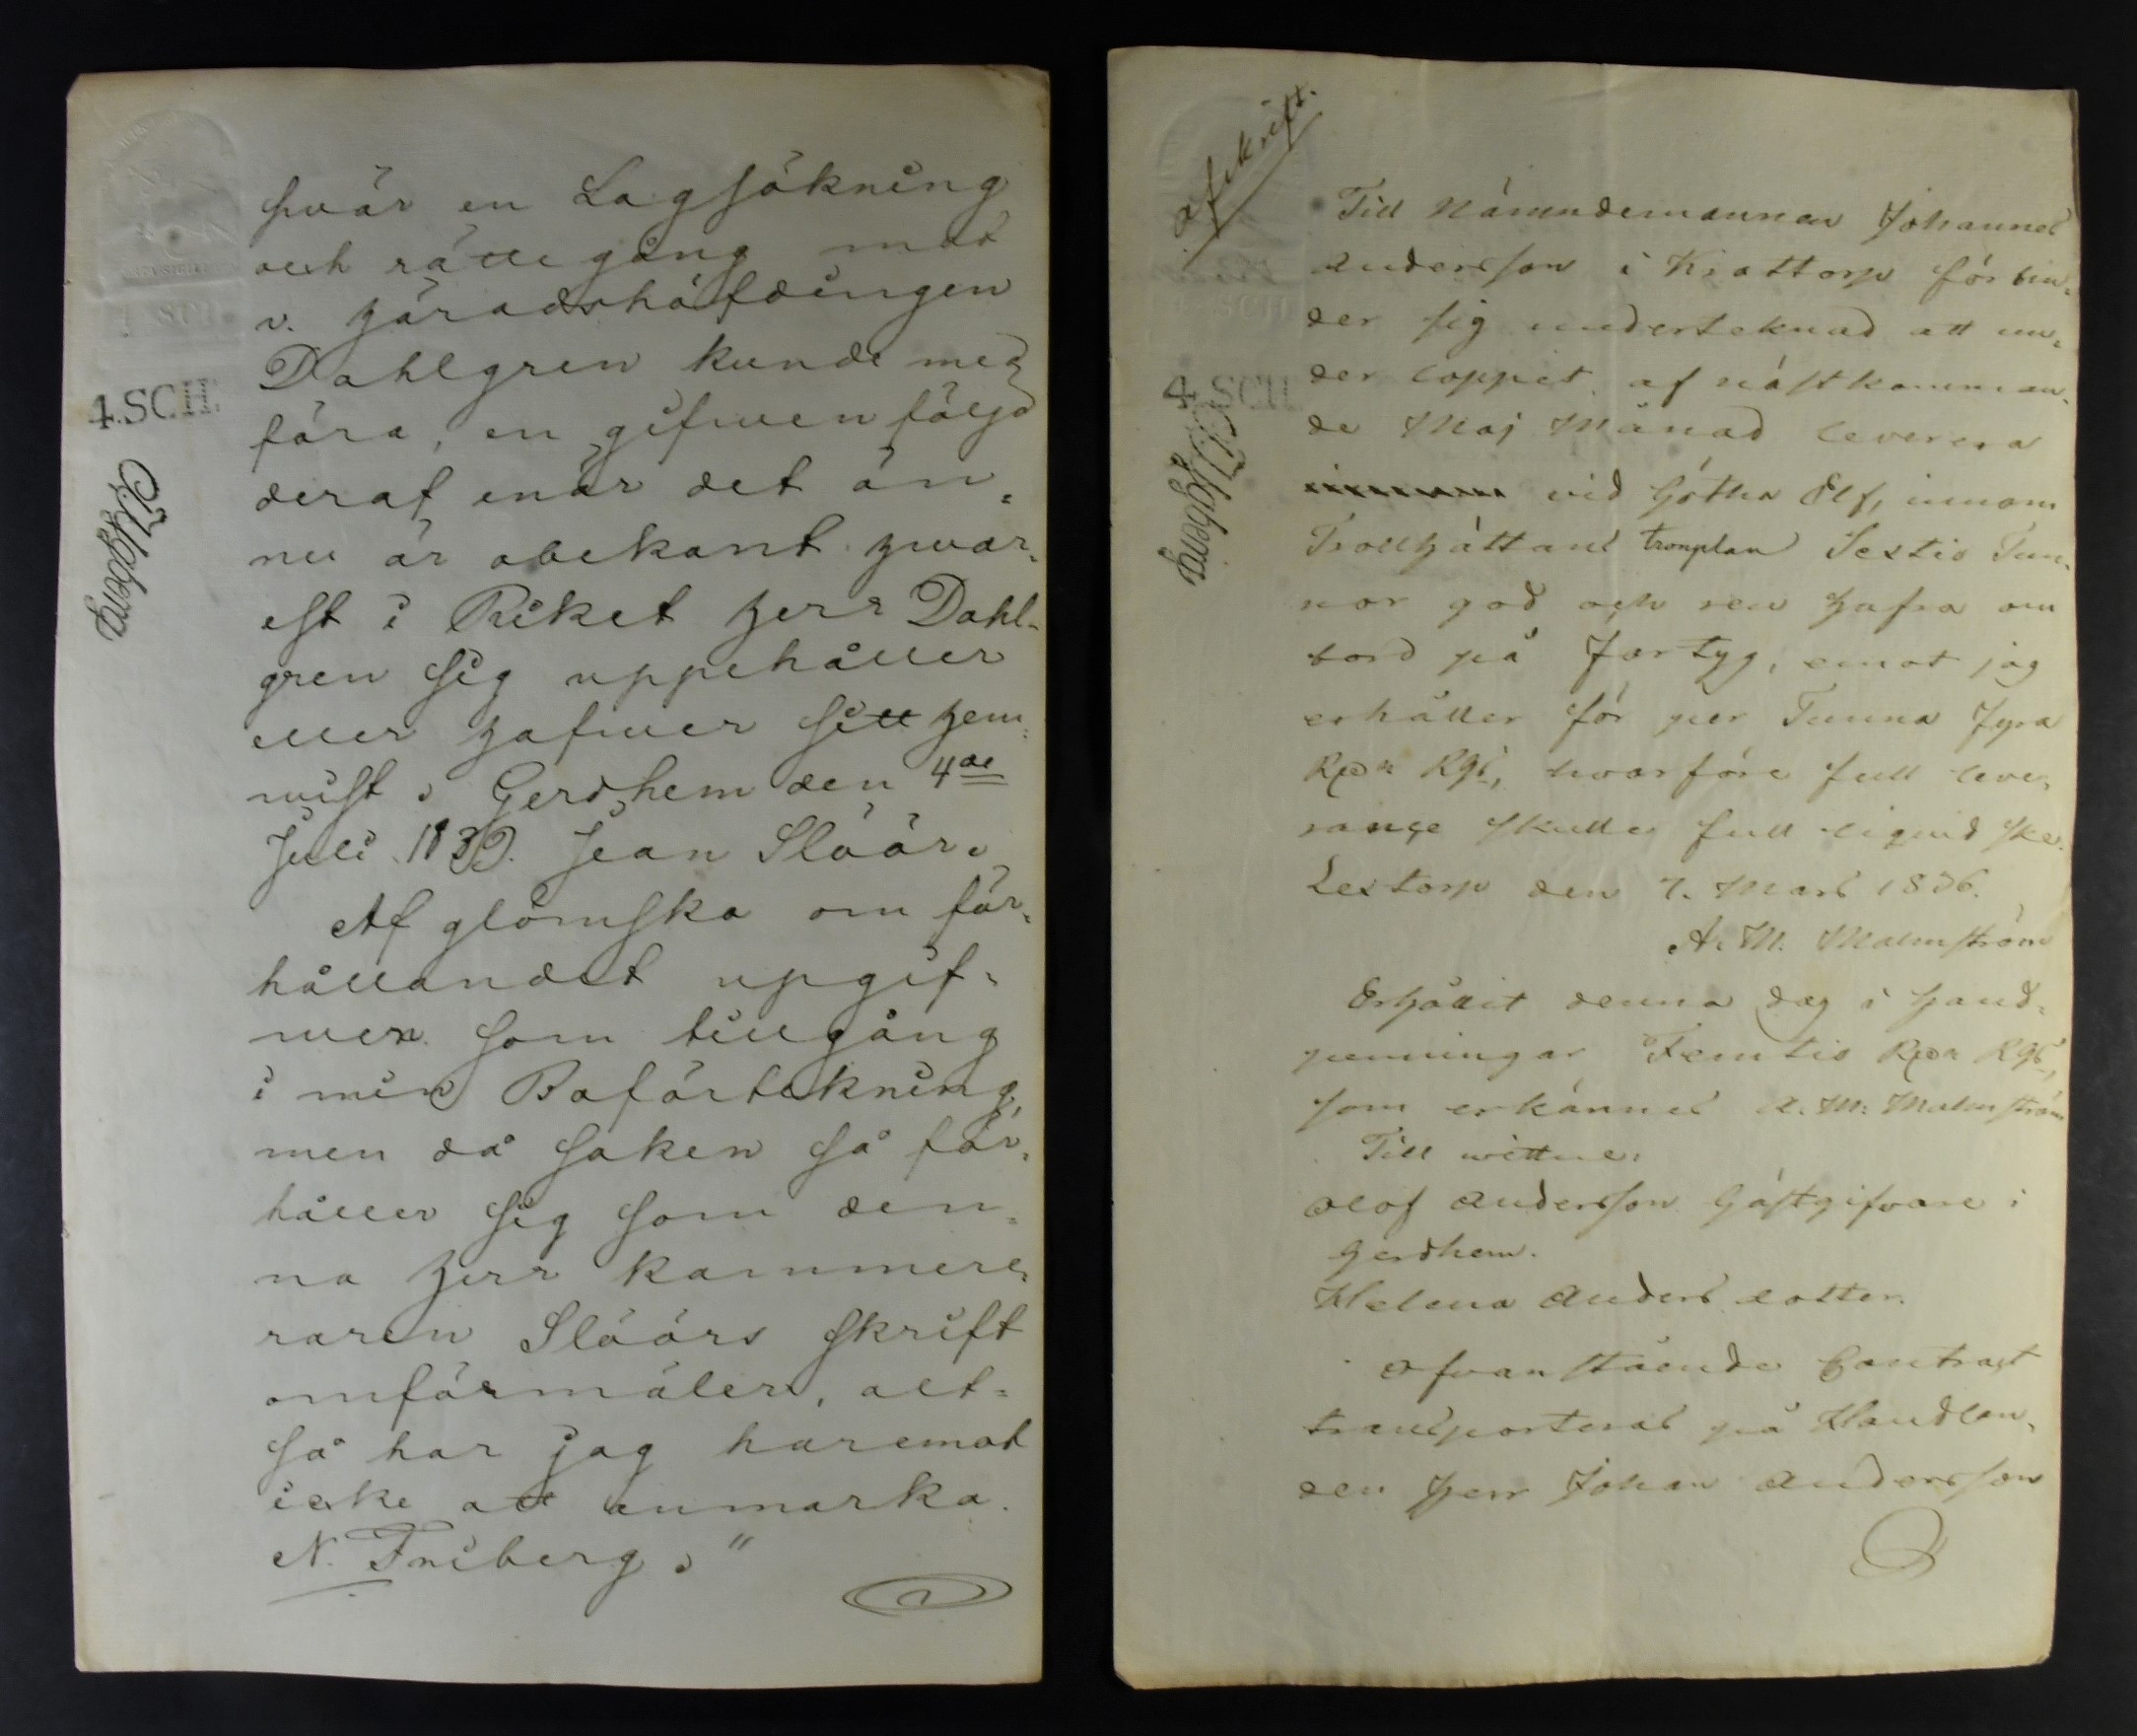 4.SCH.
svår en Lagsökning
och rättegång mot
v. Häradshöfdingen
Dahlgren kunde med
föra, en gifwen följd
deraf enär det än=
nu är obekant hwar=
est i Riket Herr Dahl-
gren sig uppehåller
eller hafwer sitt hem=
wist. Gerdhem den 4de
Juli 1839. Jean Slöör.
Af glömska om för=
hållandet upgif=
wen som tillgång
i min Boförtekning,
men då saken så för=
håller sig som den=
na Herr kammere=
raren Slöörs skrift
omförmäler, alt=
så har jag haremot
icke att anmarka.
N. Friberg."
afskrift.
4 SCH
Till Nämndemannen Johannes
Andersson i Krattorp förbin=
der sig underteknad att un=
der loppet af nästkomman=
de Maj Månad leverera
vid Götha Elf, innom
Trollhättans Sextio Tun=
nor god och ren hafra om
bord på Fartyg, emot jag
erhåller för per Tunna Fyra
Rdr Rgs, hvarföre full leve=
range skulle full liqvid ske.
Lextorp den 7. Mars 1836.
A. M. Malmström
Erhållit denna dag i hand=
penningar Femtio Rdr Rgs,
som erkännes A. M. Malmström
Till wittne:
Olof Andersson Gästgifvare i
Gerdhem.
Helena Anders dotter.
Ofvanstående Contract
transporteras på Handlan=
den Herr Johan Andersson